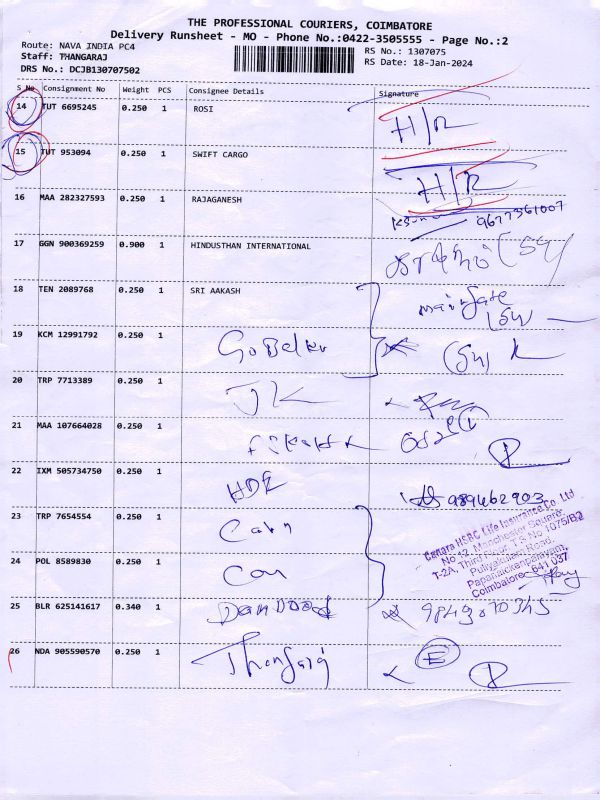 THE PROFESSIONAL COURIERS, COIMBATORE
Delivery Runsheet - MO - Phone No.:0422-3505555 - Page No.:2
Route: NAVA INDIA PC4
RS No.: 1307075
Staff: THANGARAJ
RS Date: 18-Jan-2024
DRS No.: DCJB130707502
S No Consignment No Weight PCS Consignee Details Signature
14 TUT 6695245 0.250 1 ROSI H/R
15 TUT 953094 0.250 1 SWIFT CARGO H/R
16 MAA 282327593 0.250 1 RAJAGANESH 9677361007
17 GGN 900369259 0.900 1 HINDUSTHAN INTERNATIONAL
18 TEN 2089768 0.250 1 SRI AAKASH maingate
19 KCM 12991792 0.250 1
20 TRP 7713389 0.250 1 JK
21 MAA 107664028 0.250 1
22 IXM 505734750 0.250 1
23 TRP 7654554 0.250 1
24 POL 8589830 0.250 1
Canara HSBC Life Insurance Co. Ltd
No 12, Manchester Square,
T-2A, Third Floor, T.S No 1075/B2
Puliyakulam Road,
Papanaickenpalayam,
Coimbatore- 641 037
25 BLR 625141617 0.340 1
26 NDA 905590570 0.250 1 Thangaraj E